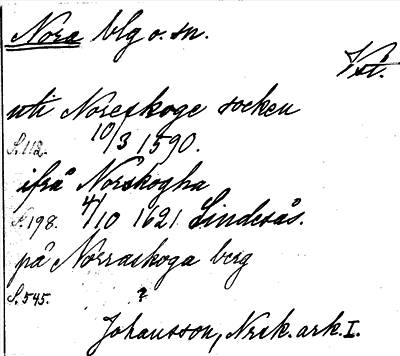 Nora blg o. sn.
Vstl.
uti Noreskoge socken
S. 112. 10/3 1590.
ifrå Norskogha
S. 198. 4/10 1621 Lindesås.
på Norraskoga berg
S. 545. ?
Johansson, Norsk. ark. I.